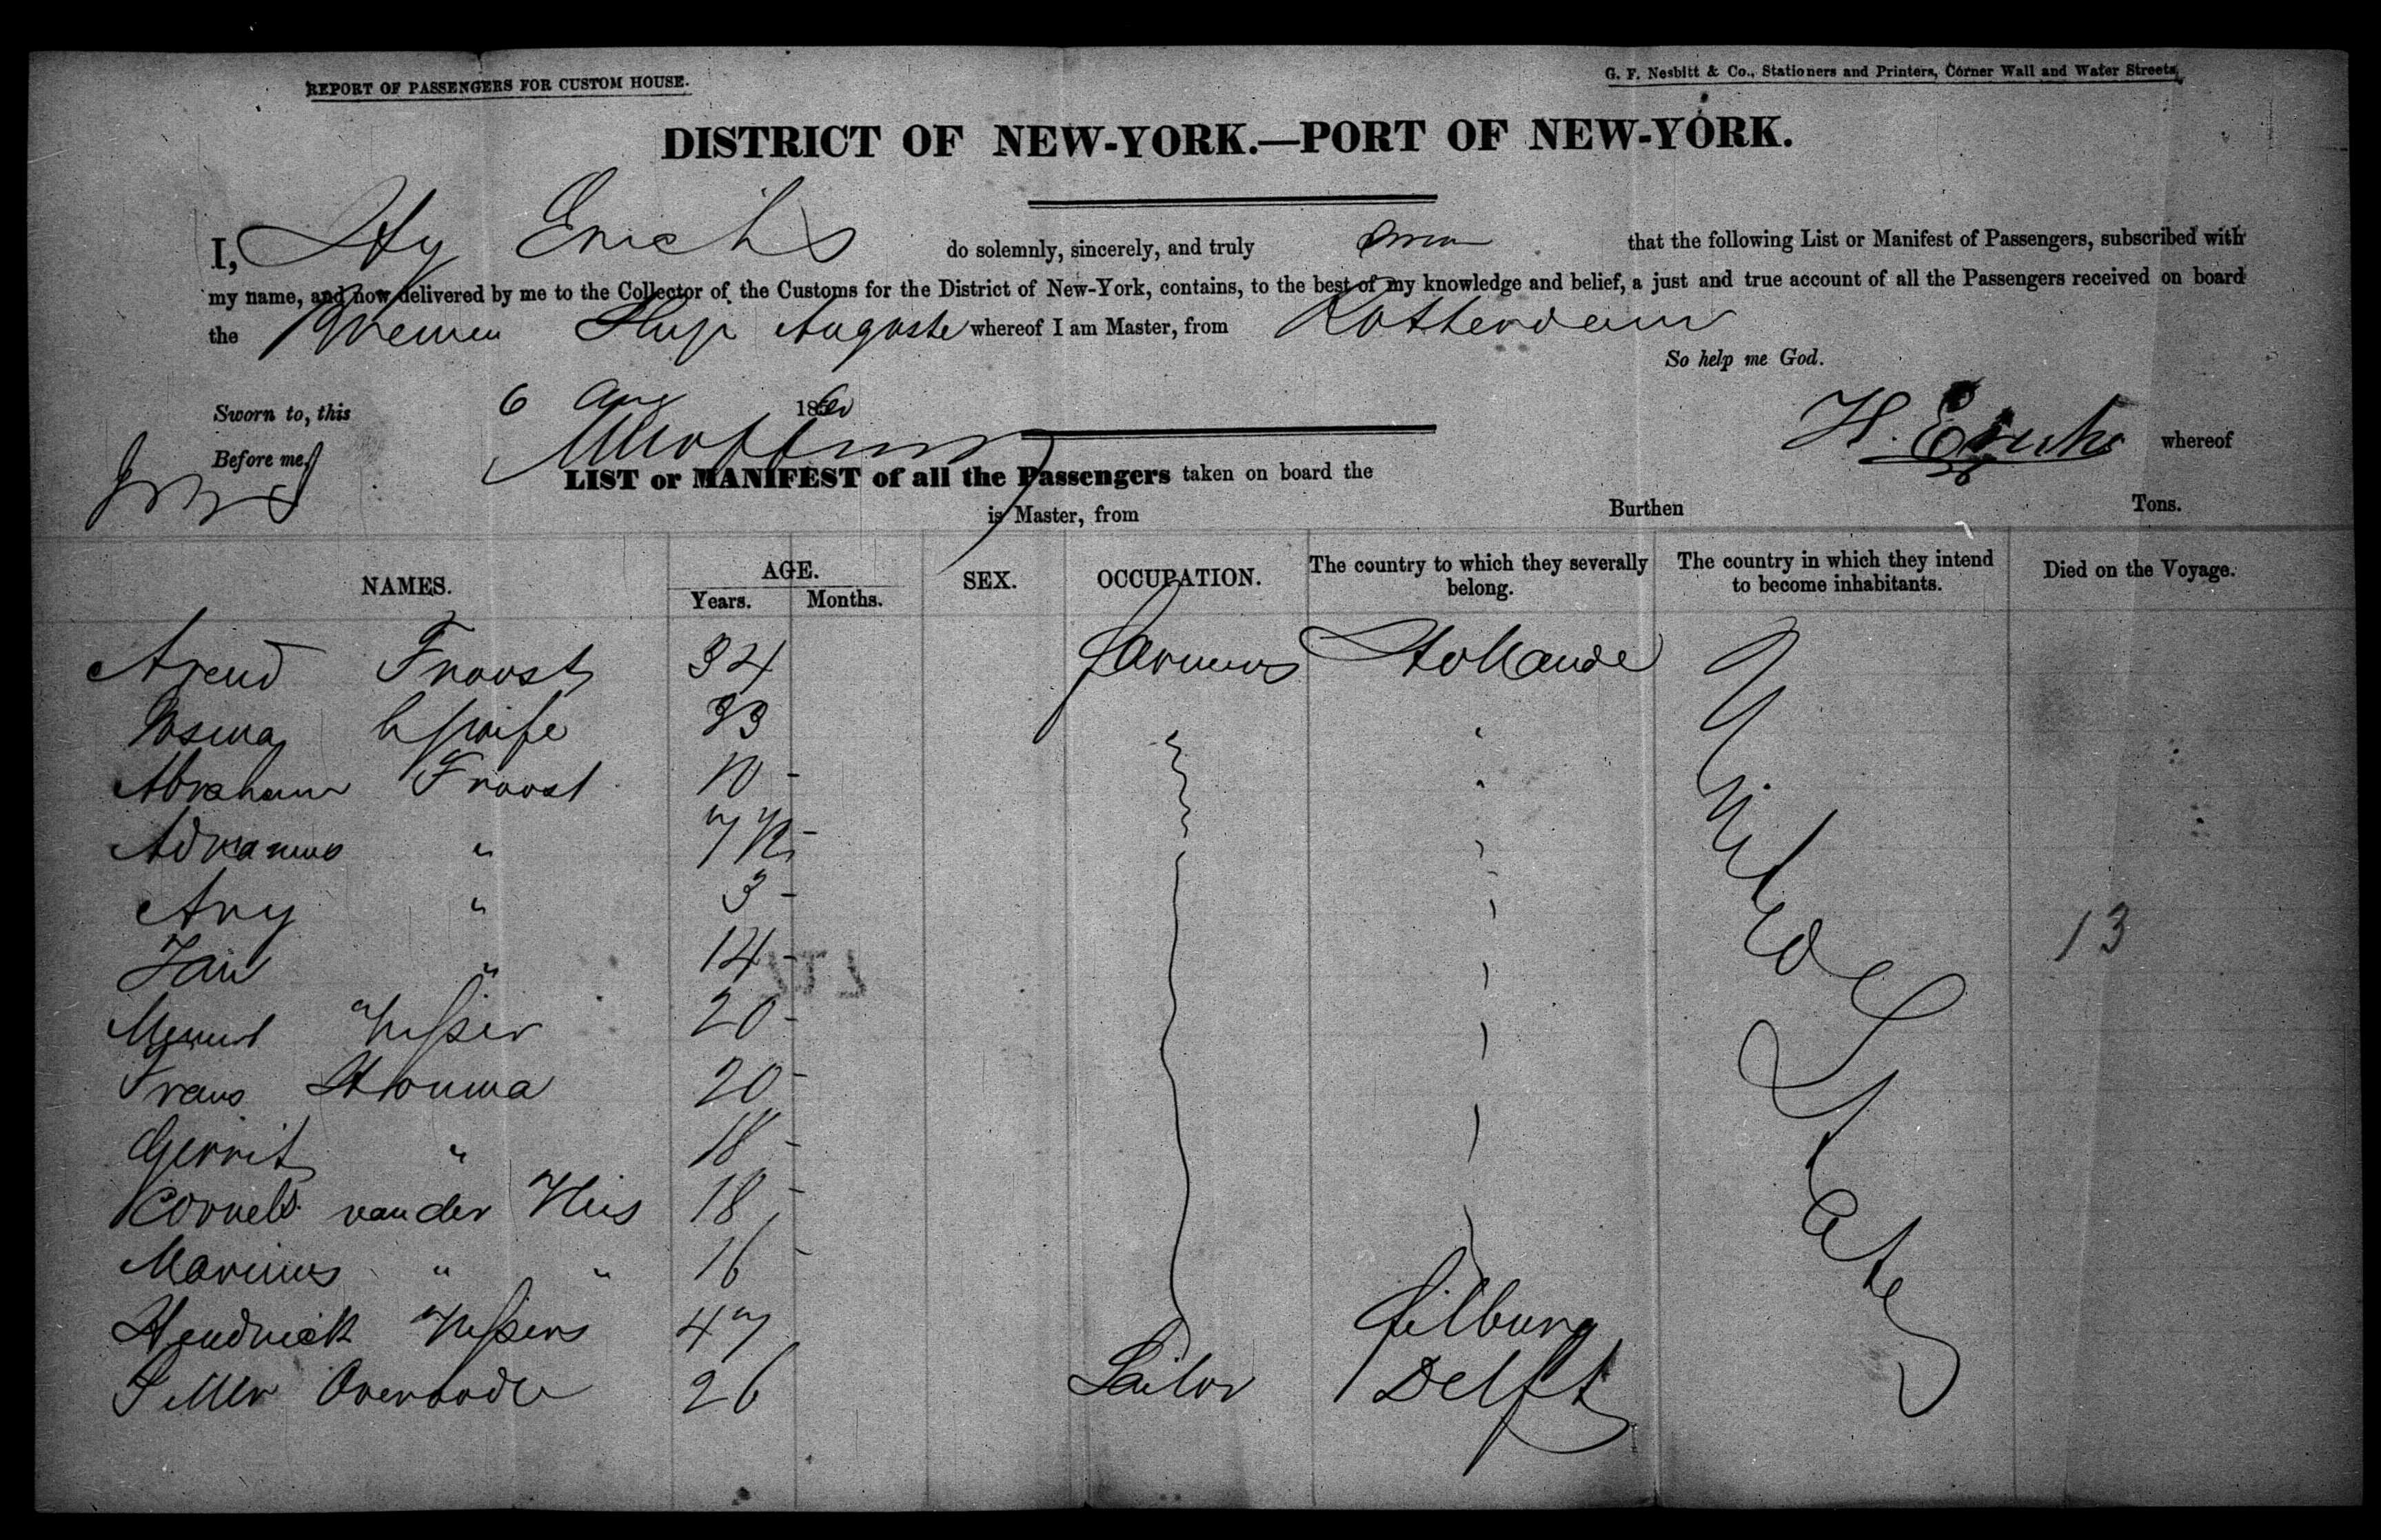 REPORT OF PASSENGERS FOR CUSTOM HOUSE.
G. F. Nesbitt & Co., Stationers and Printers, Corner Wall and Water Streets,
DISTRICT OF NEW-YORK.—PORT OF NEW-YORK.
I, Hy Erichs do solemnly, sincerely, and truly that the following List or Manifest of Passengers, subscribed with
my name, and now delivered by me to the Collector of the Customs for the District of New-York, contains, to the best of my knowledge and belief, a just and true account of all the Passengers received on board
the Bremen Ship Auguste whereof I am Master, from Rotterdam
So help me God.
Sworn to, this 6 Aug 18
H. Erichs whereof
Before me,
LIST or MANIFEST of all the Passengers taken on board the
is Master, from Burthen Tons.
NAMES. AGE. Years. Months. SEX. OCCUPATION. The country to which they severally belong. The country in which they intend to become inhabitants. Died on the Voyage.
Arend Proost 34 farmers Hollande United States
wife 33
Abraham Proost 10 -
Adrianus " 7
Ary " 3 -
Jan " 14 -
20 -
Frans 20 -
Gerrit " 18 -
Cornels van der 18 -
Marinus " " 16 -
Hendrick 47 Tilburg
Overbode 26 Sailor Delft
13